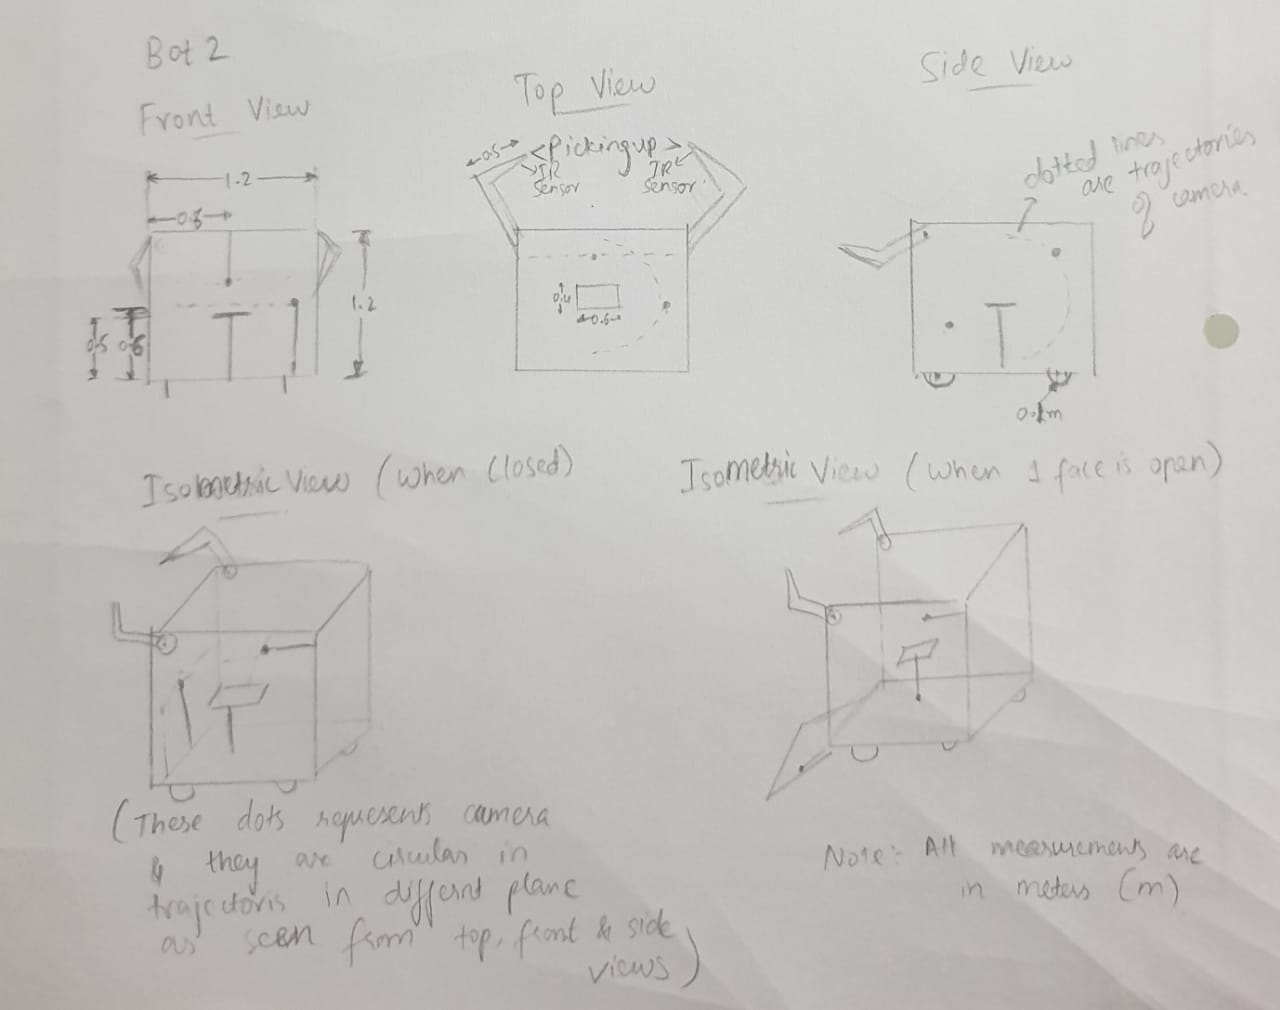 Bot 2
Front View
1.2
0.6
1.2
0.5
0.6
Top View
0.5
<Pickingup>
IR
Sensor
IR
Sensor
0.4
0.6
Side View
dotted lines
are trajectories
of camera
Isometric View (when Closed)
Isometric View (when 1 face is open)
(These dots represents camera
& they are circular in
trajectoris in differnt plane
as seen from top, front & side
views)
Note:- All measurements are
in meters (m)